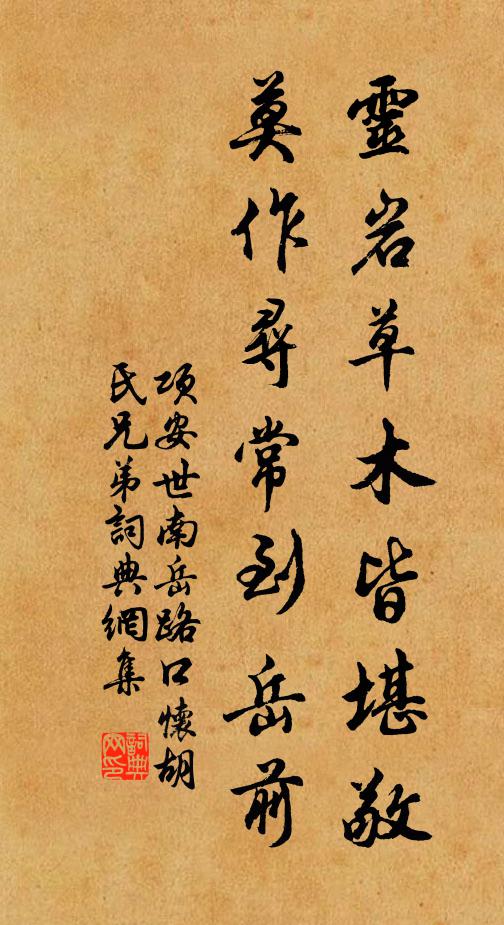 靈岩草木皆堪敬
莫作尋常到岳前
項安世南岳路口懷胡
氏兄弟詞典網集
詞典
网印